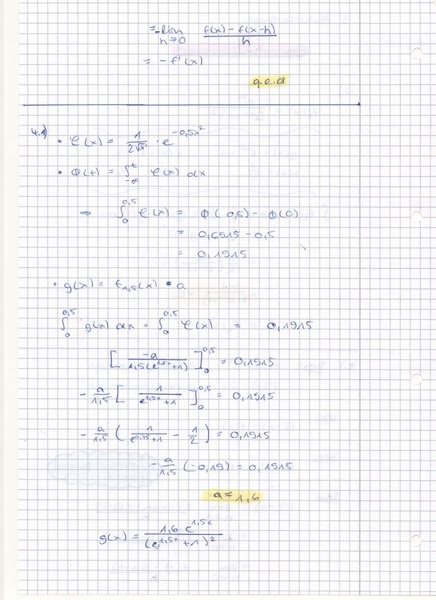 = -lim h→0 (f(x) - f(x-h)) / h
= -f'(x)
q.e.d
4.)
• φ(x) = 1/(2√π) · e^(-0,5x²)
• Φ(t) = ∫_{-∞}^{t} φ(x) dx
⇒ ∫_0^{0,5} φ(x) = Φ(0,5) - Φ(0)
= 0,6915 - 0,5
= 0,1915
• g(x) = f_{1,5}(x) • a
∫_0^{0,5} g(x) dx = ∫_0^{0,5} φ(x) = 0,1915
[ -a / (1,5(e^{1,5x}+1)) ]_0^{0,5} = 0,1915
- a/1,5 [ 1 / (e^{1,5x}+1) ]_0^{0,5} = 0,1915
- a/1,5 ( 1/(e^{0,75}+1) - 1/2 ) = 0,1915
- a/1,5 (-0,18) = 0,1915
a = 1,6
g(x) = (1,6 · e^{1,5x}) / (e^{1,5x} + 1)²